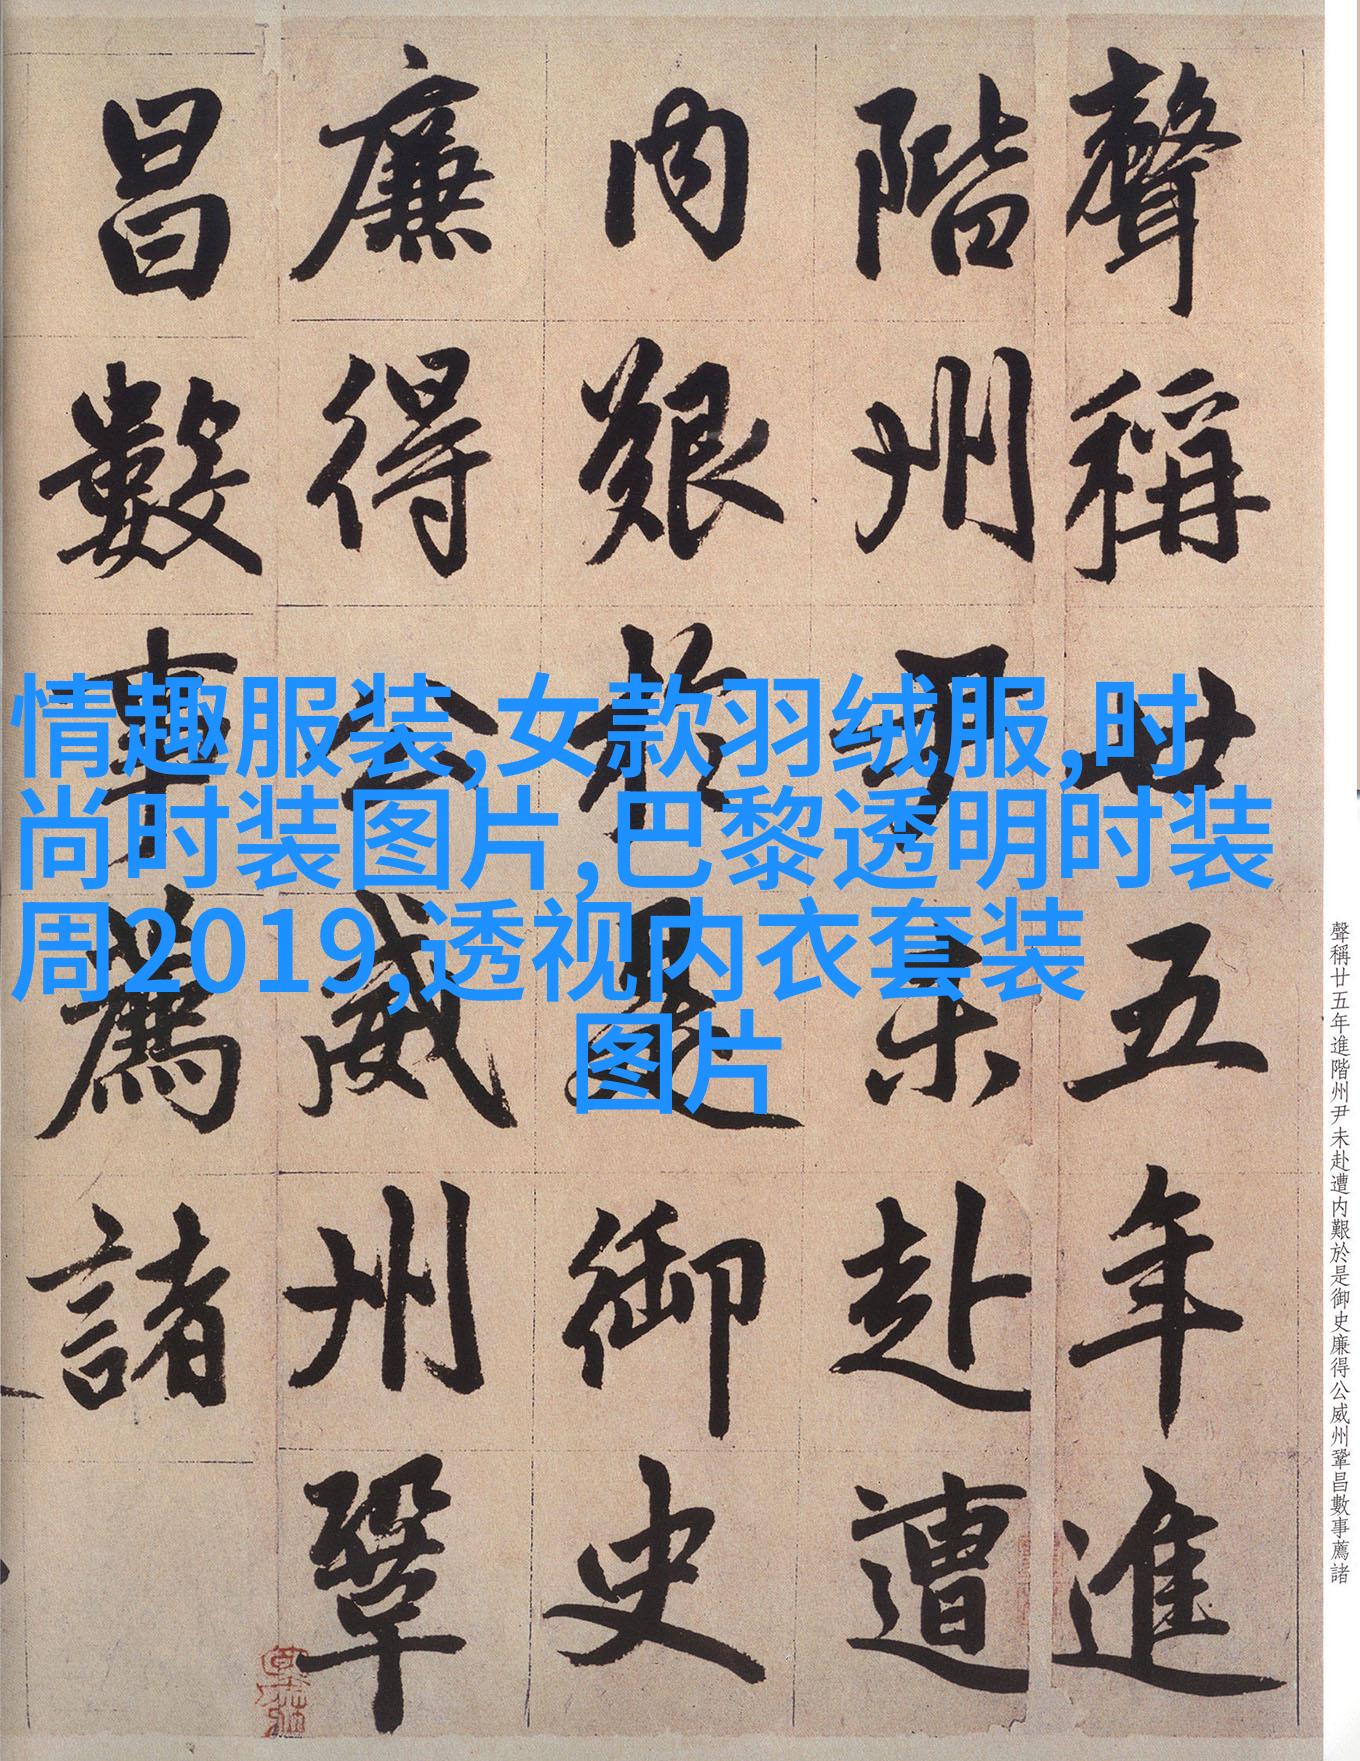 聲稱廿五年進
階州尹未赴遭
内艱於是御史
廉得公威州鞏
昌數事薦諸
情趣服装,女款羽绒服,时
尚时装图片,巴黎透明时装
周2019,透视内衣套装
图片
聲稱廿五年進階州尹未赴遭内艱於是御史廉得公威州鞏昌數事薦諸